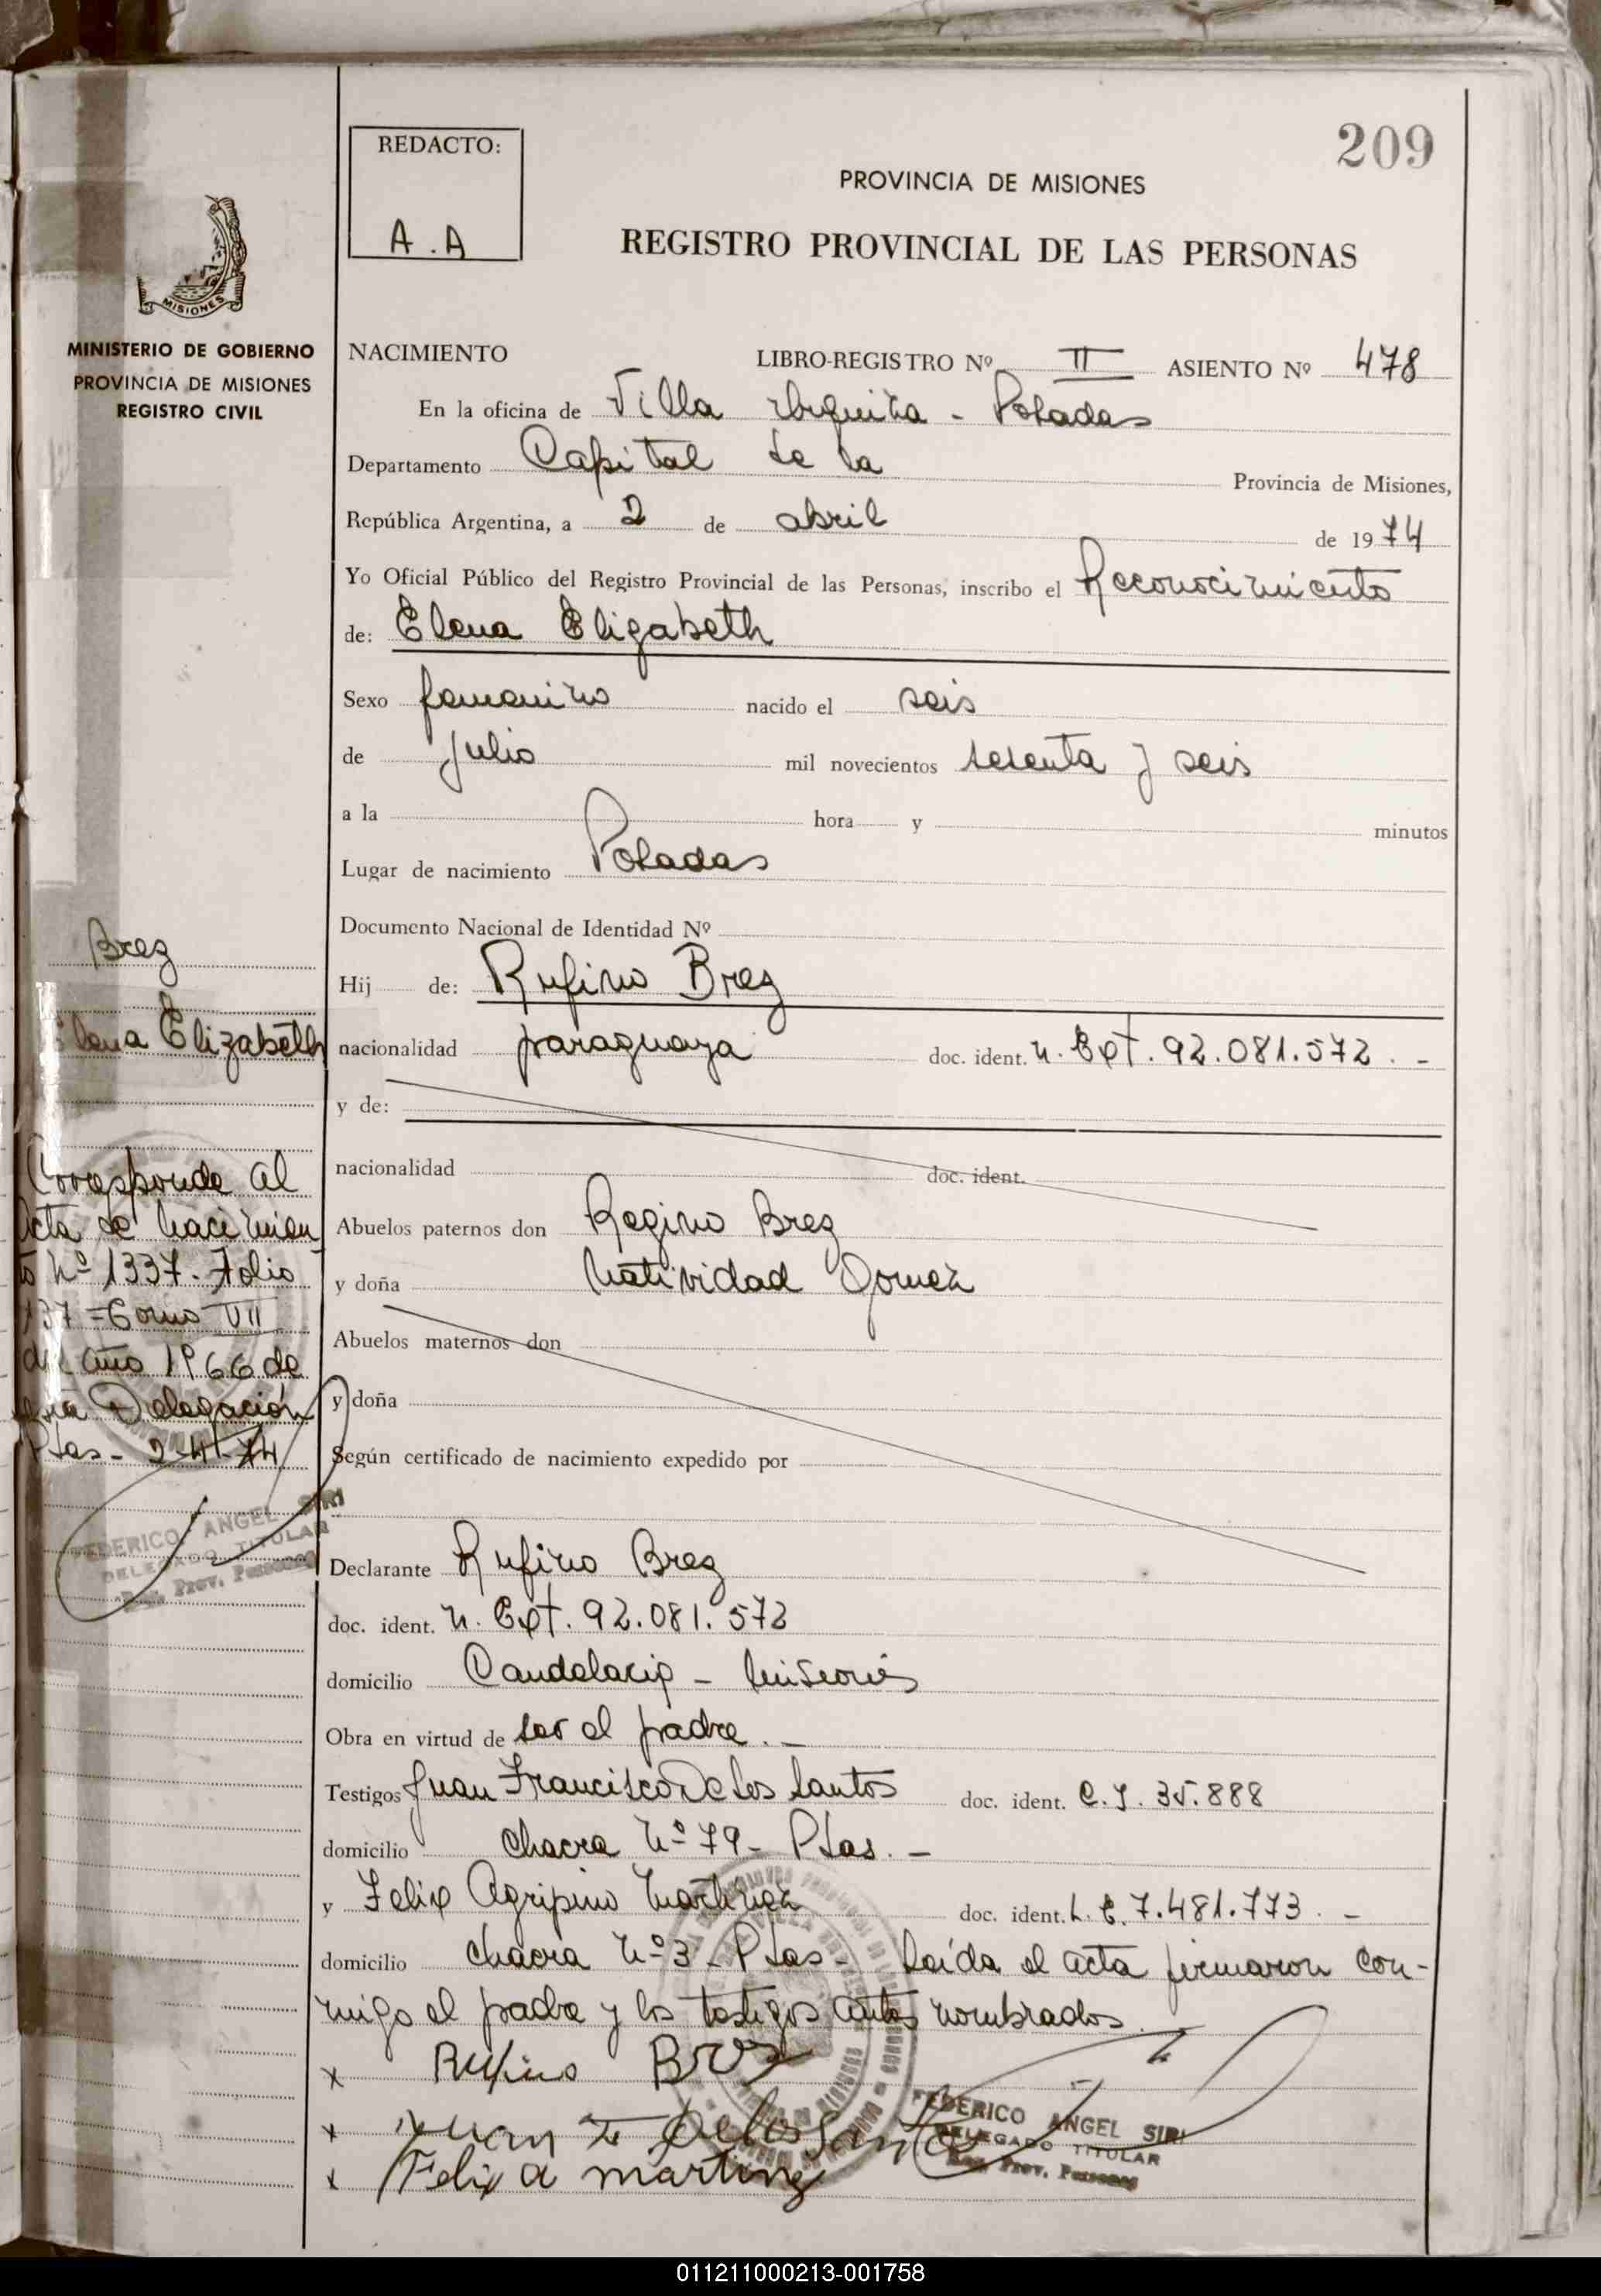 209
REDACTO:
A.A
PROVINCIA DE MISIONES
REGISTRO PROVINCIAL DE LAS PERSONAS
MISIONES
MINISTERIO DE GOBIERNO
PROVINCIA DE MISIONES
REGISTRO CIVIL
NACIMIENTO LIBRO-REGISTRO Nº II ASIENTO Nº 478
En la oficina de Villa Urquiza - Posadas
Departamento Capital de la Provincia de Misiones,
República Argentina, a 2 de abril de 1974
Yo Oficial Público del Registro Provincial de las Personas, inscribo el Reconocimiento
de: Elena Elizabeth
Sexo femenino nacido el seis
de julio mil novecientos sesenta y seis
a la hora y minutos
Lugar de nacimiento Posadas
Documento Nacional de Identidad Nº
Hij de: Rufino Brez
nacionalidad paraguaya doc. ident. n. Ext. 92.081.572.-
y de:
nacionalidad doc. ident.
Abuelos paternos don Regino Brez
y doña Natividad Gomez
Abuelos maternos don
y doña
Según certificado de nacimiento expedido por
Declarante Rufino Brez
doc. ident. n. Ext. 92.081.572
domicilio Candelaria - Misiones
Obra en virtud de ser el padre.-
Testigos Juan Francisco De los Santos doc. ident. C.I. 35.888
domicilio Chacra Nº 79 - Pdas.-
y Felix Agripino Martinez doc. ident. L.E. 7.481.773.-
domicilio Chacra Nº 3 - Pdas - Leída el acta firmaron con-
migo el padre y los testigos antes nombrados
x Rufino Brez
x Juan F De los Santos
x Felix A martinez
FEDERICO ANGEL SIRI
DELEGADO TITULAR
Reg. Prov. Personas
Brez
Elena Elizabeth
Corresponde al
Acta de nacimien
to Nº 1337. Folio
137 = Tomo VII
del año 1966 de
esta Delegación
Pdas - 2-4-74
FEDERICO ANGEL SIRI
DELEGADO TITULAR
Reg. Prov. Personas
011211000213-001758